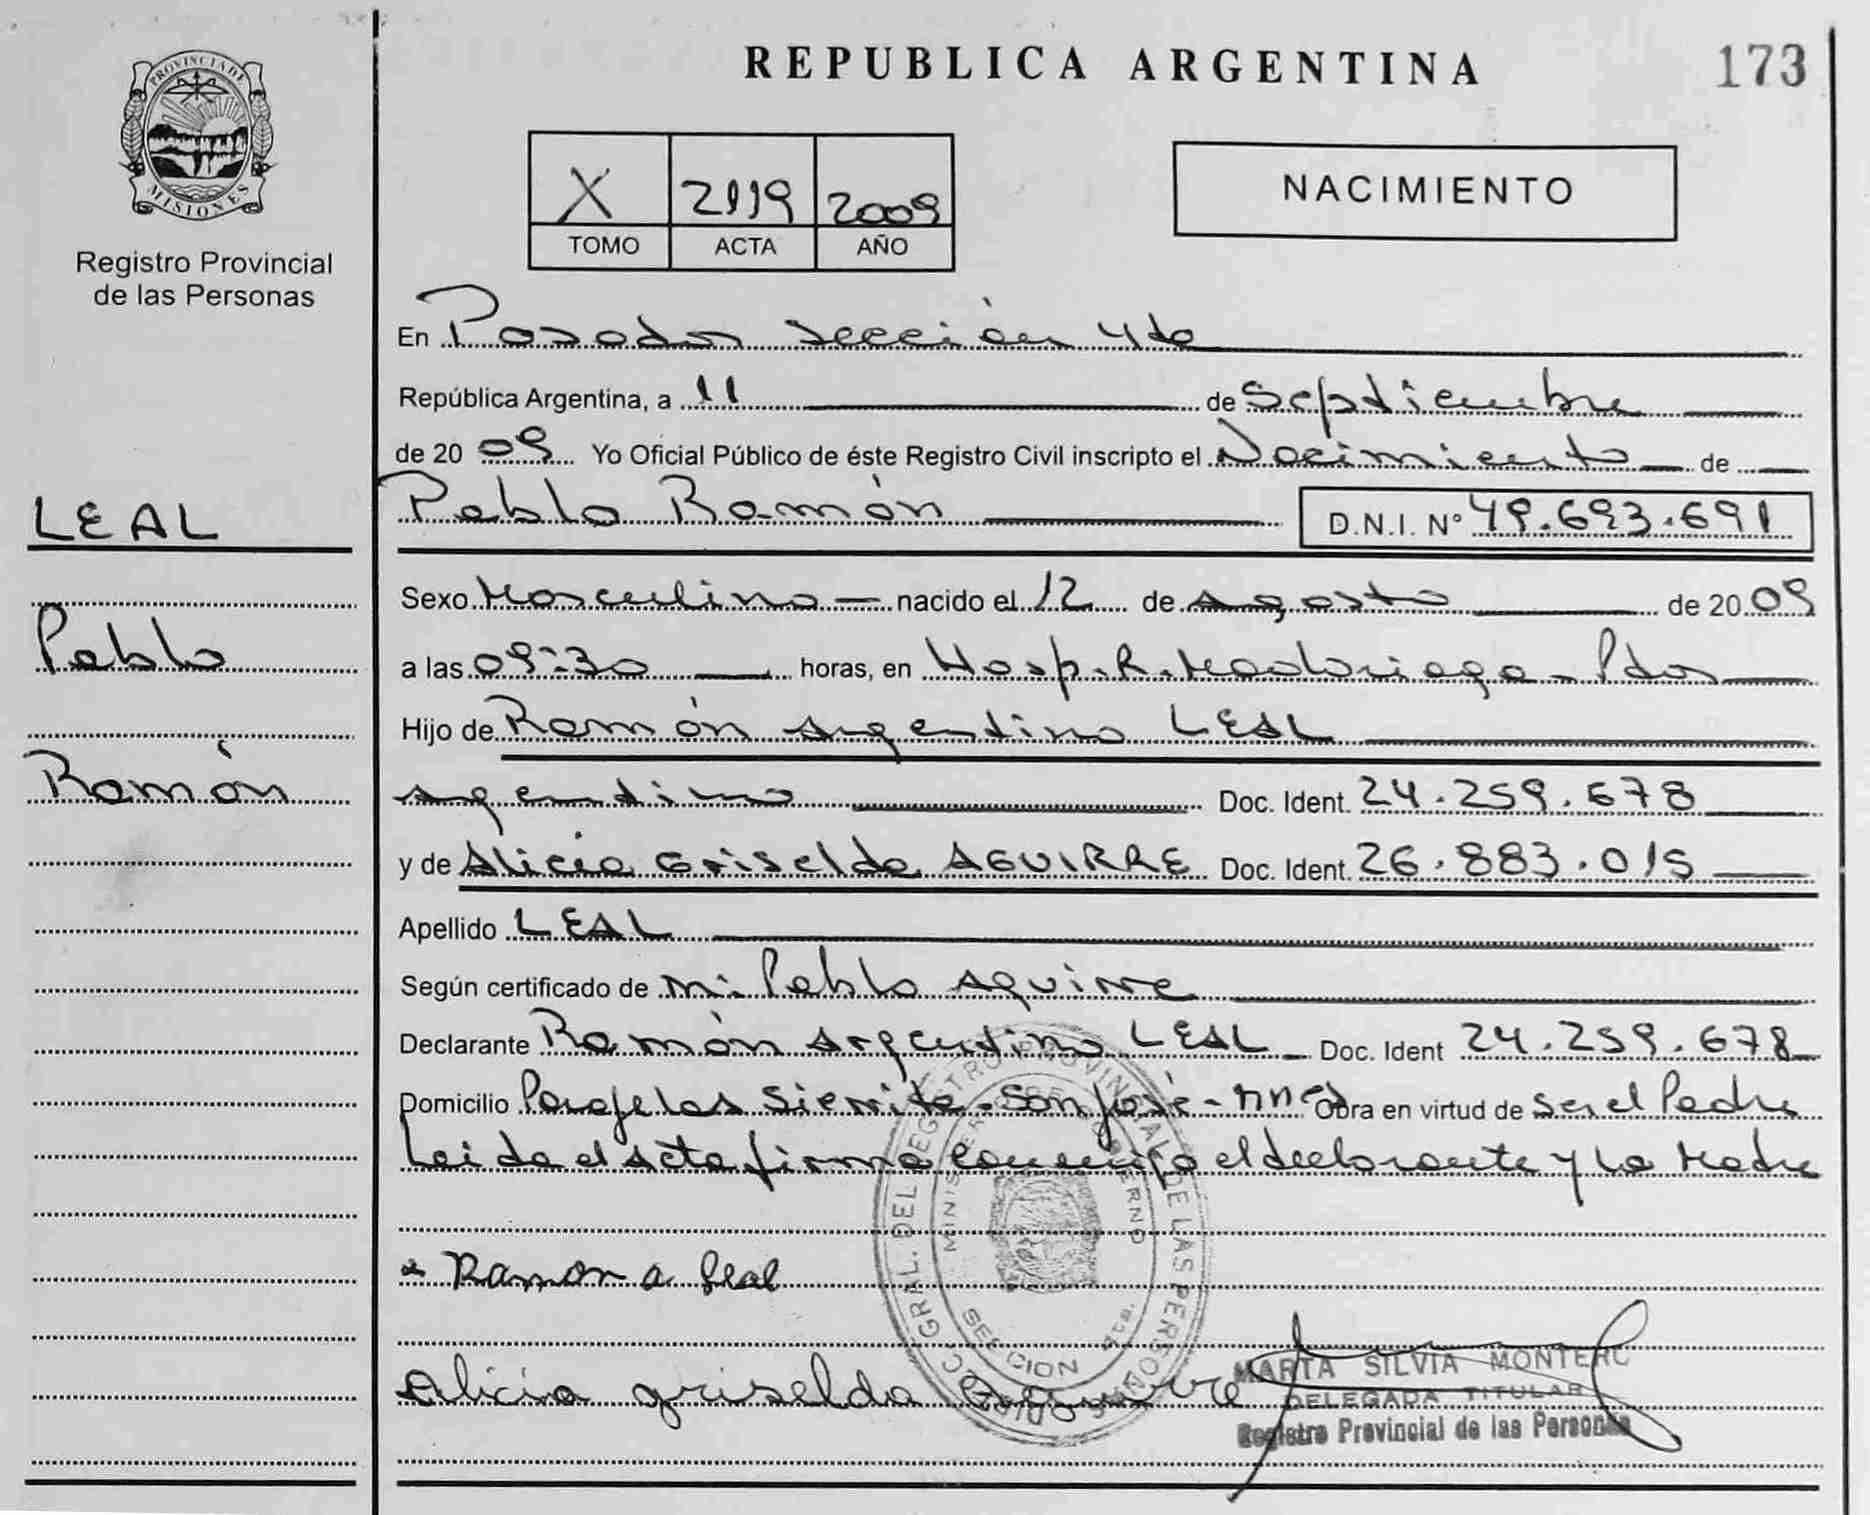 PROVINCIA DE
MISIONES
Registro Provincial
de las Personas
LEAL
Pablo
Ramón
REPUBLICA ARGENTINA
173
X 2119 2009
TOMO ACTA AÑO
NACIMIENTO
En Posadas Sección 4ta
República Argentina, a 11 de Septiembre
de 20 09 Yo Oficial Público de éste Registro Civil inscripto el Nacimiento de
Pablo Ramón D.N.I. Nº 49.693.691
Sexo Masculino nacido el 12 de Agosto de 20 09
a las 09:30 horas, en Hosp. R. Madariaga - Pdas
Hijo de Ramón Argentino LEAL
Argentino Doc. Ident. 24.259.678
y de Alicia Griselda AGUIRRE Doc. Ident. 26.883.015
Apellido LEAL
Según certificado de Pablo Aguirre
Declarante Ramón Argentino LEAL Doc. Ident 24.259.678
Domicilio Paraje Las Sierrita - San José - Mnes Obra en virtud de Ser el Padre
Leida el Acta firma conmigo el declarante y La Madre
Ramon a leal
Alicia griselda Aguirre
MARTA SILVIA MONTERO
DELEGADA TITULAR
Registro Provincial de las Personas
DIREC. GRAL. DEL REGISTRO PROVINCIAL DE LAS PERSONAS
MINISTERIO DE GOBIERNO
SECCION 4ta.